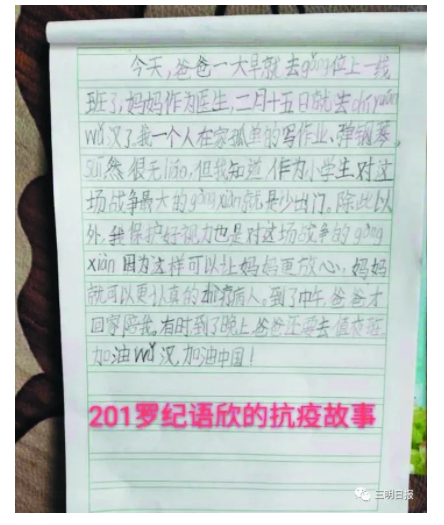 今天,爸爸一大早就去gǎng位上一线
班了,妈妈作为医生,二月十五日就去zhī yuán
wǔ汉了。我一个人在家孤单的写作业、弹钢琴,
suī然很无liáo,但我知道作为小学生,对这
场战争最大的gòng xiàn就是少出门。除此以
外,我保护好视力也是对这场战争的gòng
xiàn 因为这样可以让妈妈更放心,妈妈
就可以更认真的zhì疗病人。到了中午,爸爸才
回家陪我。有时到了晚上,爸爸还要去值夜班
加油wǔ汉,加油中国!
201罗纪语欣的抗疫故事
三明日报